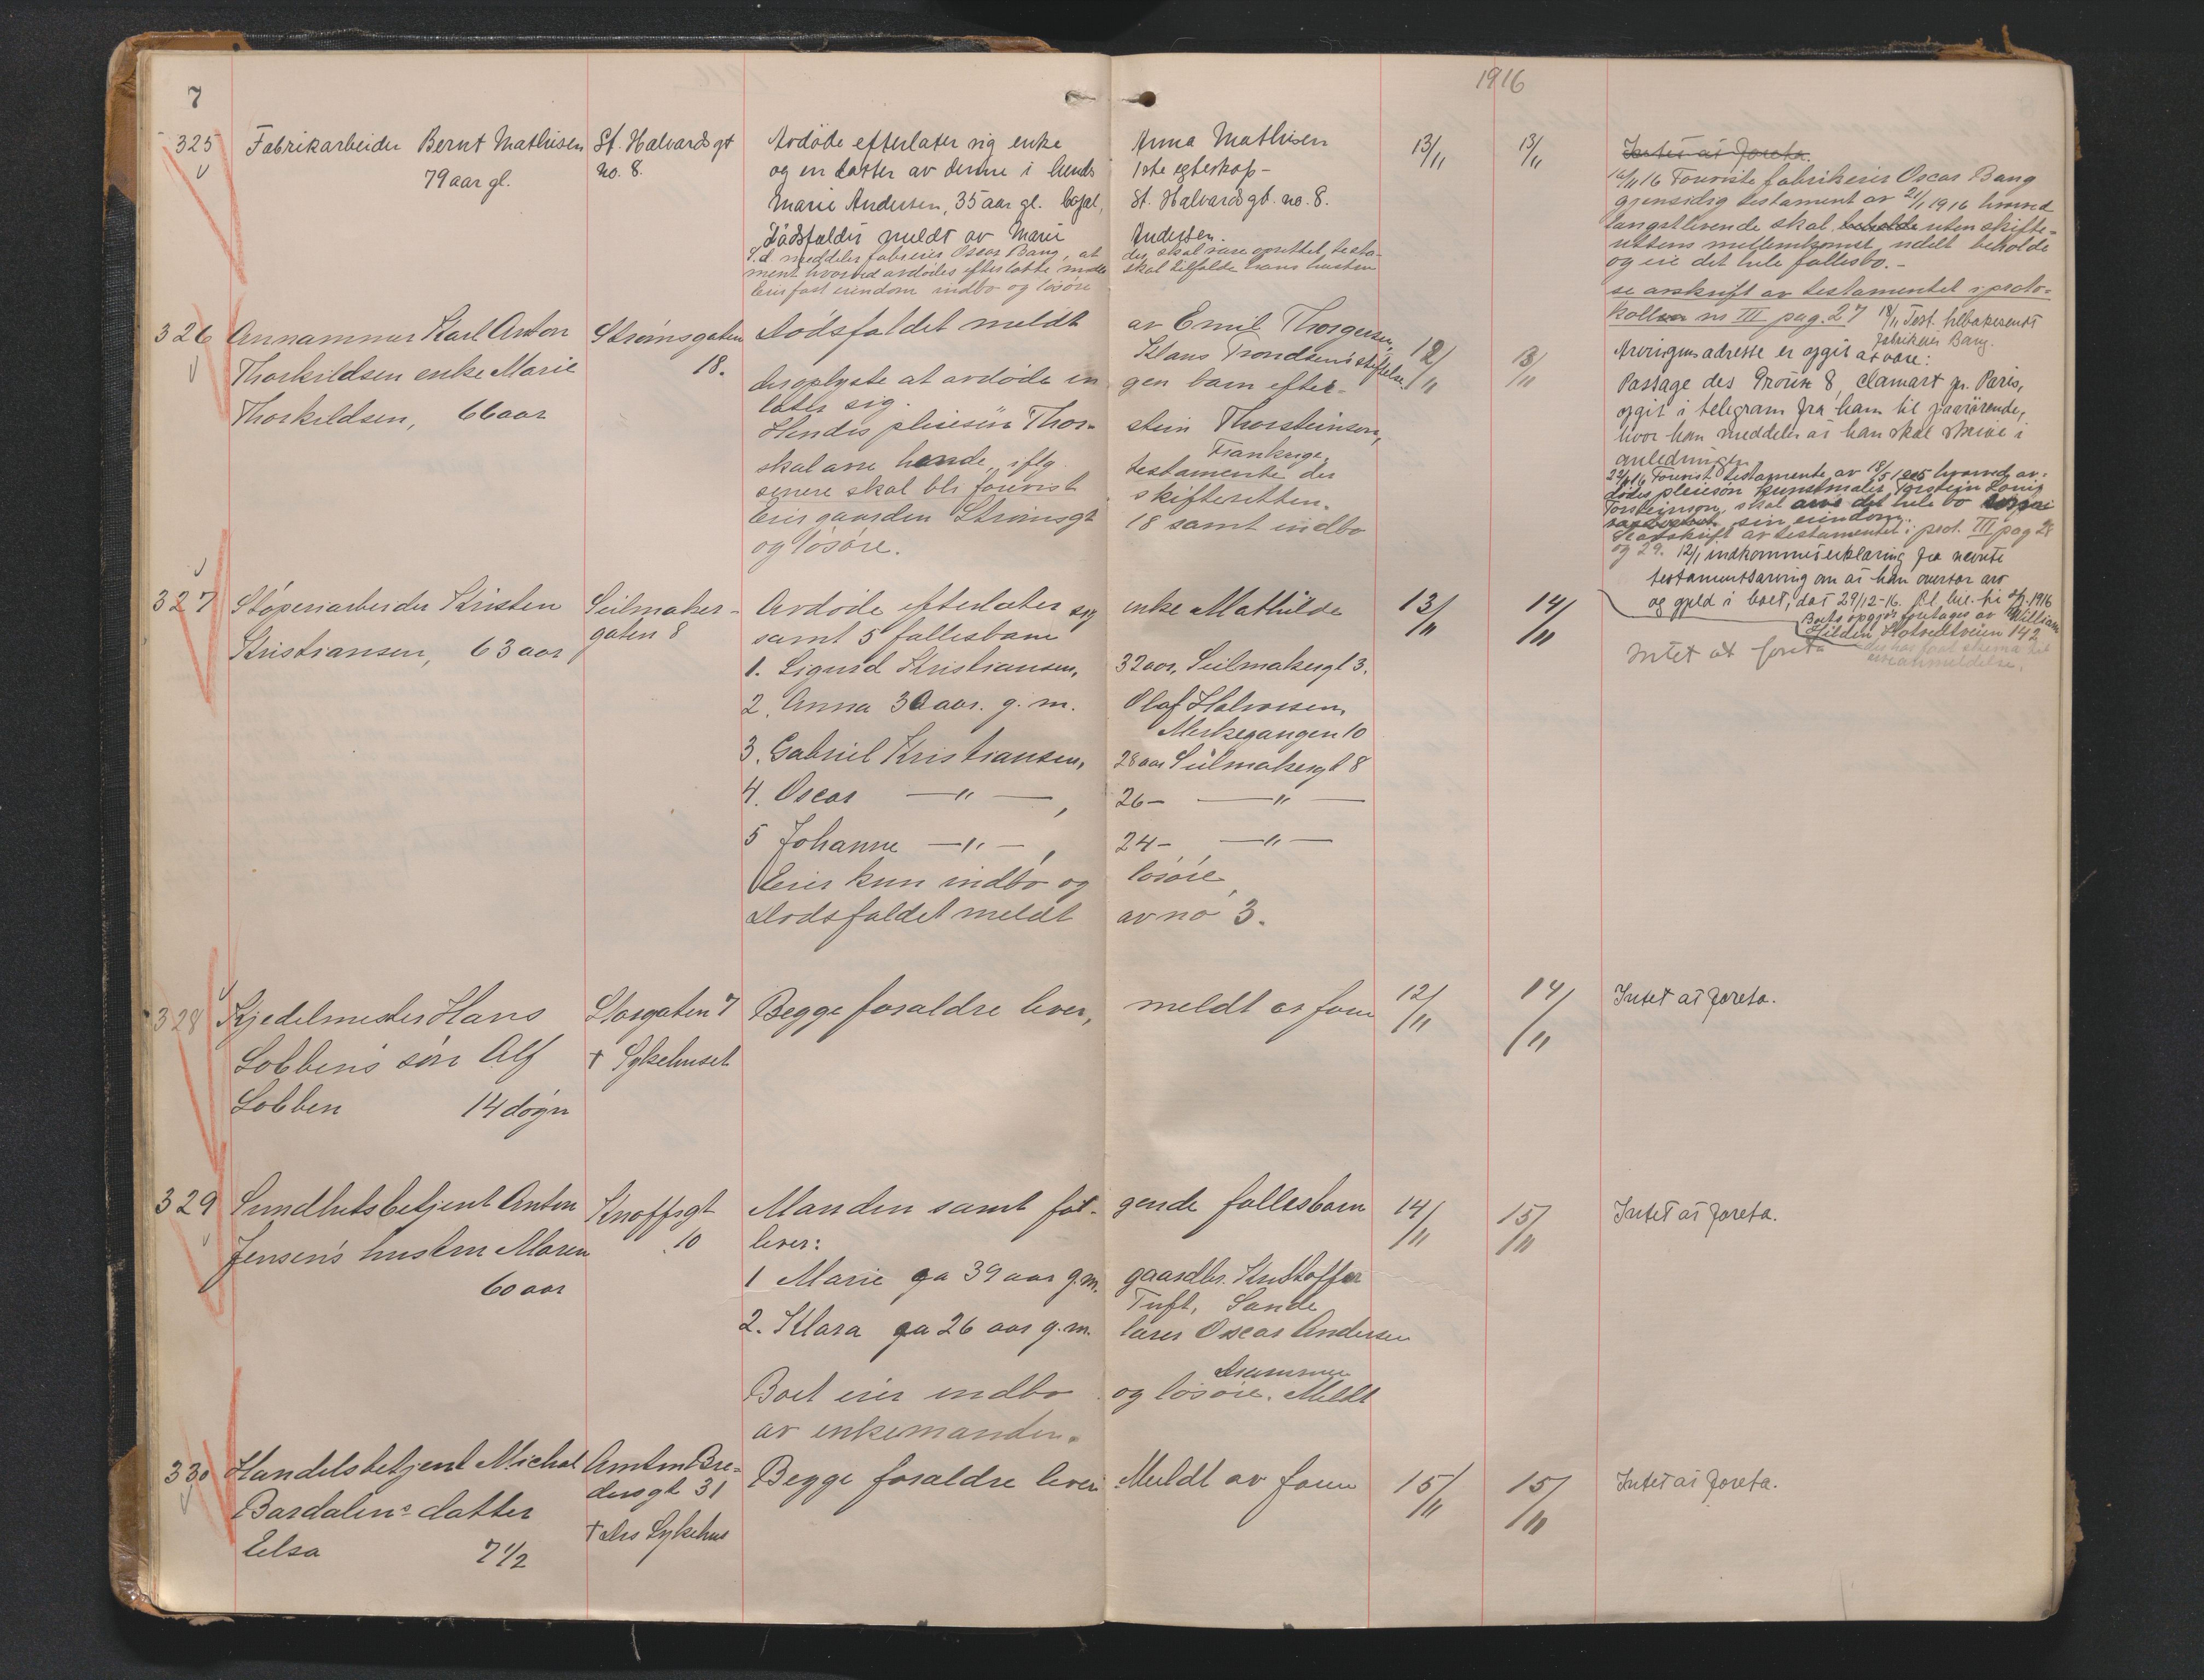 7
1916
325
Fabrikarbeider Bernt Mathisen
79 aar gl.
St. Halvards gt
no. 8.
Avdøde efterlater sig enke Anna Mathisen
og en datter av denne i hends 1ste egteskap-
Marie Andersen, 35 aar gl. bopæl, St. Halvards gt. no. 8.
Dødsfaldet meldt av Marie Andersen.
S.d. meddeler fabrikeier Oscar Bang, at der skal være oprettet testa-
ment hvorved avdødes efterlatte midler skal tilfalde hans hustru
Eier fast eiendom indbo og løsøre
13/11
13/11
Intet at foreta.
16/11 16 Foreviste fabrikeier Oscar Bang
gjensidig testament av 21/1 1916 hvorved
længstlevende skal beholde uten skifte-
rettens mellemkomst, udelt beholde
og eie det hele fællesbo.-
se avskrift av testamentet i proto-
kollen nr III pag. 27 18/11 Test. tilbakesendt
fabrikeier Bang.
326
Thorkildsen enke Marie
Thorkildsen, 66 aar
Strømsgaten
18.
Dødsfaldet meldt av Emil Thorgersen,
Klaus Trondsens stiftelse.
der oplyste at avdøde in gen barn efter-
later sig.
Hendes pleiesøn Thor- stein Thorsteinsen,
Frankrige,
skal arve hende, iflg. testamente der
senere skal bli forevist skifteretten.
Eier gaarden Strømsgt 18 samt indbo
og løsøre.
12/11
13/11
Arvingens adresse er opgit at være:
Passage des 8, Clamart pr. Paris,
opgit i telegram fra ham til paarørende,
hvor han meddeler at han skal skrive i
anledningen
Torsteinson, skal arve det hele bo
sin eiendom.
Se avskrift av testamentet i prot. III pag 28
og 29. 12/1 indkommet erklæring fra nævnte
testamentsarving om at han overtar arv
og gjeld i boet, dat 29/12-16.
Boets opgjør foretages av William
Hilden, Hotvedtveien 142
327
Støperiarbeider Kristen
Kristiansen, 63 aar
Seilmaker-
gaten 8
Avdøde efterlater sig enke Mathilde
samt 5 fællesbarn
1. Sigurd Kristiansen, 32 aar, Seilmakergt 3.
2. Anna 30 aar. g. m. Olaf Halvorsen,
Merkegangen 10
3. Gabriel Kristiansen, 28 aar Seilmakergt 8
4. Oscar —"—, 26- —"—
5 Johanne —"—, 24- —"—
Eier kun indbo og løsøre,
Dødsfaldet meldt av no 3.
13/11
14/11
Intet at foreta
328
Kjedelmester Hans
Lobben's søn Alf
Lobben 14 døgn
Storgaten 7
† Sykehuset
Begge forældre lever, meldt av faren
12/11
14/11
Intet at foreta.
329
Sundhetsbetjent Anton
Jensen's hustru Maren
60 aar
Knoffsgt
10
Manden samt føl- gende fællesbarn
lever:
1 Marie ca 39 aar g.m. gaardbr. Kristoffer
Tuft, Sande
2. Klara ca 26 aar g.m. lærer Oscar Andersen
Drammen
Boet eier indbo og løsøre. Meldt
av enkemanden.
14/11
15/11
Intet at foreta.
330
Handelsbetjent Michal
Bardalens datter
Elsa 7 1/2
Amtm Bre-
dersgt 31
† Drs Sykehus
Begge forældre lever. Meldt av faren
15/11
15/11
Intet at foreta.